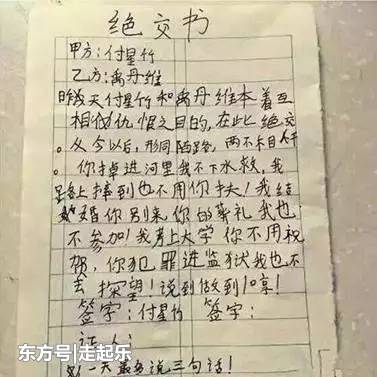 绝交书
甲方:付星竹
乙方:禹丹维
昨天付星竹和禹丹维本着互
相仇恨之目的,在此绝交
。从今以后,形同陌路,两不相干
。你掉进河里我不下水救,我
路上摔到也不用你扶!我结
婚你别来你的葬礼我也
不参加!我考上大学你不用祝
贺,你犯罪进监狱我也不
去探望!说到做到10享!
签字:付星竹 签字:
证人:
一天最多说三句话!
东方号|走起乐